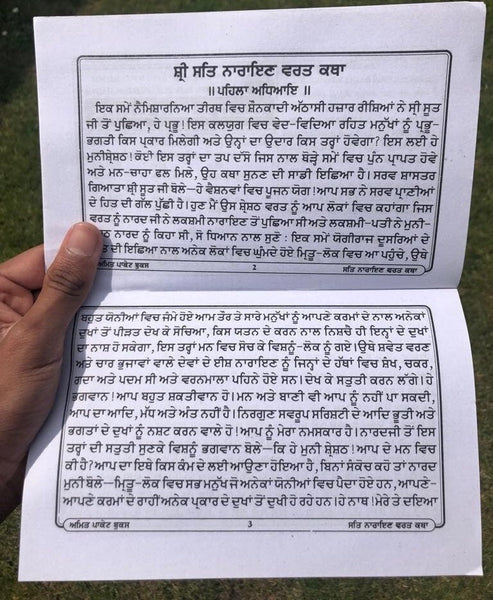 ਸ਼੍ਰੀ ਸਤਿ ਨਾਰਾਇਣ ਵਰਤ ਕਥਾ
॥ ਪਹਿਲਾ ਅਧਿਆਇ ॥
ਇਕ ਸਮੇਂ ਨੈਮਿਸ਼ਾਰਨਿਆ ਤੀਰਥ ਵਿਚ ਸ਼ੌਨਕਾਦੀ ਅੱਠਾਸੀ ਹਜ਼ਾਰ ਰੀਸ਼ਿਆਂ ਨੇ ਸ੍ਰੀ ਸੂਤ
ਜੀ ਤੋਂ ਪੁਛਿਆ, ਹੇ ਪ੍ਰਭੂ! ਇਸ ਕਲਯੁਗ ਵਿਚ ਵੇਦ-ਵਿਦਿਆ ਰਹਿਤ ਮਨੁੱਖਾਂ ਨੂੰ ਪ੍ਰਭੂ-
ਭਗਤੀ ਕਿਸ ਪ੍ਰਕਾਰ ਮਿਲੇਗੀ ਅਤੇ ਉਨ੍ਹਾਂ ਦਾ ਉਦਾਰ ਕਿਸ ਤਰ੍ਹਾਂ ਹੋਵੇਗਾ? ਇਸ ਲਈ ਹੇ
ਮੁਨੀਸ਼੍ਰੇਸ਼ਠ! ਕੋਈ ਇਸ ਤਰ੍ਹਾਂ ਦਾ ਤਪ ਦੱਸੋ ਜਿਸ ਨਾਲ ਥੋੜ੍ਹੇ ਸਮੇਂ ਵਿਚ ਪੁੰਨ ਪ੍ਰਾਪਤ ਹੋਵੇ
ਅਤੇ ਮਨ-ਚਾਹਾ ਫਲ ਮਿਲੇ, ਉਹ ਕਥਾ ਸੁਣਨ ਦੀ ਸਾਡੀ ਇਛਿਆ ਹੈ। ਸਰਵ ਸ਼ਾਸਤਰ
ਗਿਆਤਾ ਸ਼੍ਰੀ ਸੂਤ ਜੀ ਬੋਲੇ—ਹੇ ਵੈਸ਼ਨਵਾਂ ਵਿਚ ਪੂਜਨ ਯੋਗ! ਆਪ ਸਭ ਨੇ ਸਰਵ ਪ੍ਰਾਣੀਆਂ
ਦੇ ਹਿਤ ਦੀ ਗੱਲ ਪੁੱਛੀ ਹੈ। ਹੁਣ ਮੈਂ ਉਸ ਸ਼੍ਰੇਸ਼ਠ ਵਰਤ ਨੂੰ ਆਪ ਲੋਕਾਂ ਵਿਚ ਕਹਾਂਗਾ ਜਿਸ
ਵਰਤ ਨੂੰ ਨਾਰਦ ਜੀ ਨੇ ਲਕਸ਼ਮੀ ਨਾਰਾਇਣ ਤੋਂ ਪੁਛਿਆ ਸੀ ਅਤੇ ਲਕਸ਼ਮੀ-ਪਤੀ ਨੇ ਮੁਨੀ-
ਨਾਰਦ ਨੂੰ ਕਿਹਾ ਸੀ, ਸੋ ਧਿਆਨ ਨਾਲ ਸੁਣੋ : ਇਕ ਸਮੇਂ ਯੋਗੀਰਾਜ ਦੂਸਰਿਆਂ ਦੇ
ਦੀ ਇਛਿਆ ਨਾਲ ਅਨੇਕ ਲੋਕਾਂ ਵਿਚ ਘੁੰਮਦੇ ਹੋਏ ਮ੍ਰਿਤੂ-ਲੋਕ ਵਿਚ ਆ ਪਹੁੰਚੇ, ਉਥੇ
ਅਮਿਤ ਪਾਕੇਟ ਬੁਕਸ 2 ਸਤਿ ਨਾਰਾਇਣ ਵਰਤ ਕਥਾ
ਬਹੁਤ ਯੋਨੀਆਂ ਵਿਚ ਜੰਮੇ ਹੋਏ ਆਮ ਤੌਰ ਤੇ ਸਾਰੇ ਮਨੁੱਖਾਂ ਨੂੰ ਆਪਣੇ ਕਰਮਾਂ ਦੇ ਨਾਲ ਅਨੇਕਾਂ
ਦੁਖਾਂ ਤੋਂ ਪੀੜਤ ਦੇਖ ਕੇ ਸੋਚਿਆ, ਕਿਸ ਯਤਨ ਦੇ ਕਰਨ ਨਾਲ ਨਿਸ਼ਚੇ ਹੀ ਇਨ੍ਹਾਂ ਦੇ ਦੁਖਾਂ
ਦਾ ਨਾਸ਼ ਹੋ ਸਕੇਗਾ, ਇਸ ਤਰ੍ਹਾਂ ਮਨ ਵਿਚ ਸੋਚ ਕੇ ਵਿਸ਼ਨੂੰ-ਲੋਕ ਨੂੰ ਗਏ। ਉਥੇ ਸ਼ਵੇਤ ਵਰਣ
ਅਤੇ ਚਾਰ ਭੁਜਾਵਾਂ ਵਾਲੇ ਦੇਵਾਂ ਦੇ ਈਸ਼ ਨਾਰਾਇਣ ਨੂੰ ਜਿਨ੍ਹਾਂ ਦੇ ਹੱਥਾਂ ਵਿਚ ਸ਼ੰਖ, ਚਕਰ,
ਗਦਾ ਅਤੇ ਪਦਮ ਸੀ ਅਤੇ ਵਰਨਮਾਲਾ ਪਹਿਨੇ ਹੋਏ ਸਨ। ਦੇਖ ਕੇ ਸਤੁਤੀ ਕਰਨ ਲੱਗੇ। ਹੇ
ਭਗਵਾਨ! ਆਪ ਬਹੁਤ ਸ਼ਕਤੀਵਾਨ ਹੋ। ਮਨ ਅਤੇ ਬਾਣੀ ਵੀ ਆਪ ਨੂੰ ਨਹੀਂ ਪਾ ਸਕਦੀ,
ਆਪ ਦਾ ਆਦਿ, ਮੱਧ ਅਤੇ ਅੰਤ ਨਹੀਂ ਹੈ। ਨਿਰਗੁਣ ਸਵਰੂਪ ਸਰਿਸ਼ਟੀ ਦੇ ਆਦਿ ਭੂਤੀ ਅਤੇ
ਭਗਤਾਂ ਦੇ ਦੁਖਾਂ ਨੂੰ ਨਸ਼ਟ ਕਰਨ ਵਾਲੇ ਹੋ! ਆਪ ਨੂੰ ਮੇਰਾ ਨਮਸਕਾਰ ਹੈ। ਨਾਰਦਜੀ ਤੋਂ ਇਸ
ਤਰ੍ਹਾਂ ਦੀ ਸਤੁਤੀ ਸੁਣਕੇ ਵਿਸ਼ਨੂੰ ਭਗਵਾਨ ਬੋਲੇ—ਕਿ ਹੇ ਮੁਨੀ ਸ਼੍ਰੇਸ਼ਠ! ਆਪ ਦੇ ਮਨ ਵਿਚ
ਕੀ ਹੈ? ਆਪ ਦਾ ਇਥੇ ਕਿਸ ਕੰਮ ਦੇ ਲਈ ਆਉਣਾ ਹੋਇਆ ਹੈ, ਬਿਨਾਂ ਸੰਕੋਚ ਕਹੋ ਤਾਂ ਨਾਰਦ
ਮੁਨੀ ਬੋਲੇ—ਮ੍ਰਿਤੂ-ਲੋਕ ਵਿਚ ਸਭ ਮਨੁੱਖ ਜੋ ਅਨੇਕਾਂ ਯੋਨੀਆਂ ਵਿਚ ਪੈਦਾ ਹੋਏ ਹਨ, ਆਪਣੇ-
ਆਪਣੇ ਕਰਮਾਂ ਦੇ ਰਾਹੀਂ ਅਨੇਕ ਪ੍ਰਕਾਰ ਦੇ ਦੁਖਾਂ ਤੋਂ ਦੁਖੀ ਹੋ ਰਹੇ ਹਨ। ਹੇ ਨਾਥ! ਮੇਰੇ ਤੇ ਦਇਆ
ਅਮਿਤ ਪਾਕੇਟ ਬੁਕਸ 3 ਸਤਿ ਨਾਰਾਇਣ ਵਰਤ ਕਥਾ